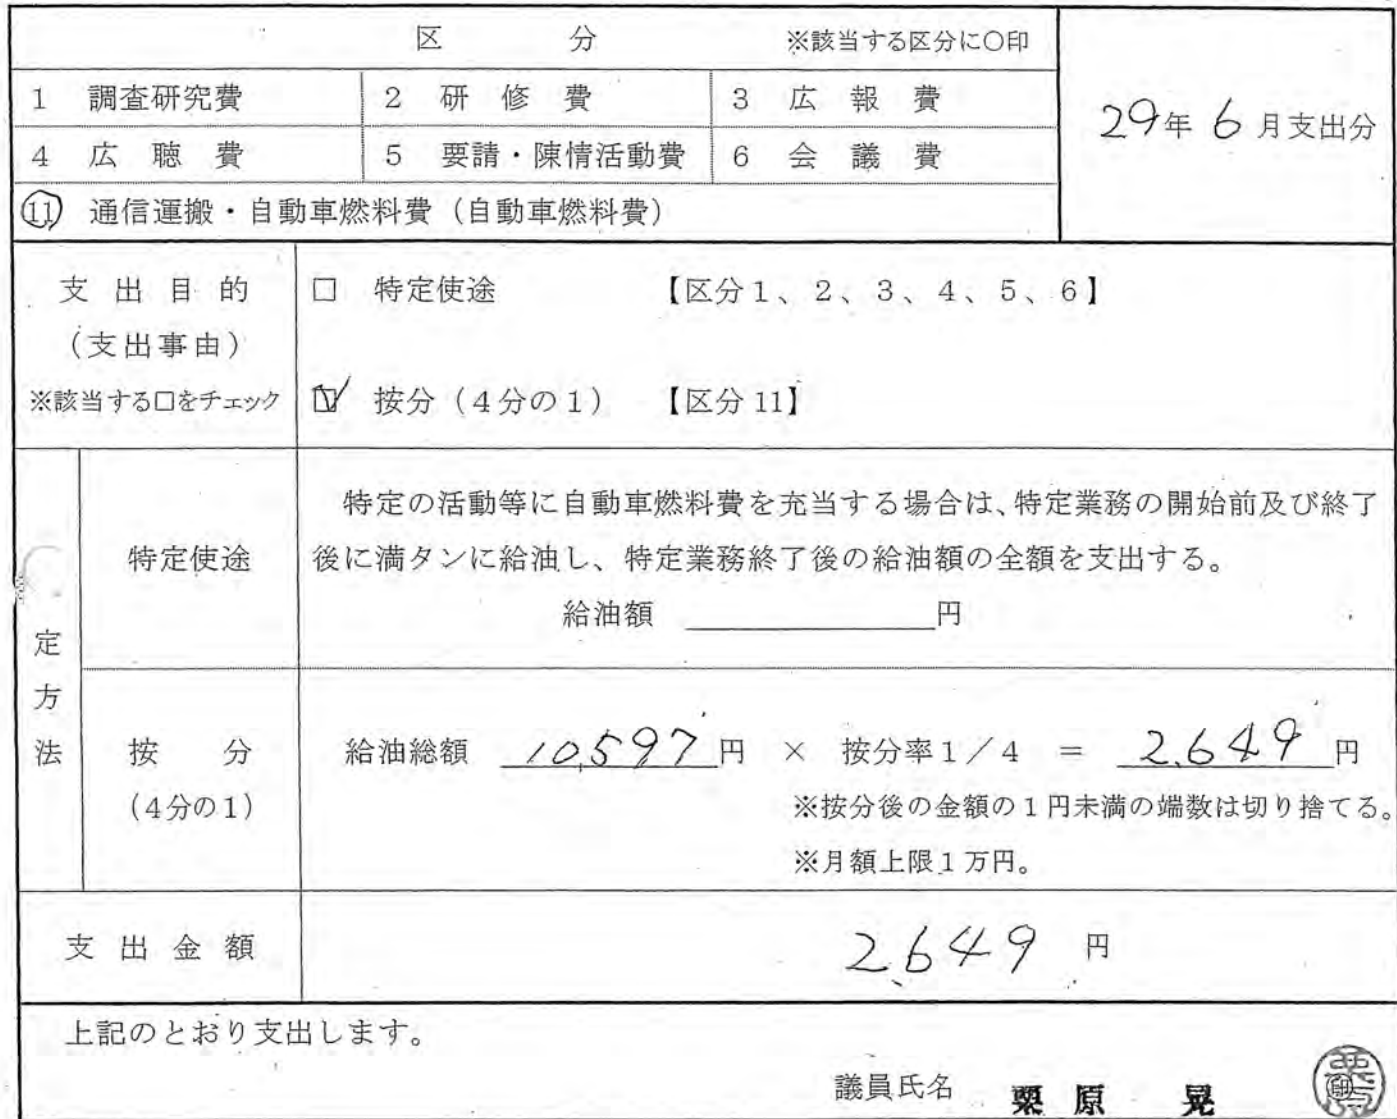 区 分 ※該当する区分に○印
29年 6月支出分
1 調査研究費 2 研修費 3 広報費
4 広聴費 5 要請・陳情活動費 6 会議費
⑪ 通信運搬・自動車燃料費（自動車燃料費）
支出目的
（支出事由）
※該当する□をチェック
□ 特定使途 【区分1、2、3、4、5、6】
☑ 按分（4分の1） 【区分11】
定方法
特定使途
特定の活動等に自動車燃料費を充当する場合は、特定業務の開始前及び終了
後に満タンに給油し、特定業務終了後の給油額の全額を支出する。
給油額 ＿＿＿＿円
按分
（4分の1）
給油総額 10,597円 × 按分率1／4 = 2,649円
※按分後の金額の1円未満の端数は切り捨てる。
※月額上限1万円。
支出金額 2649 円
上記のとおり支出します。
議員氏名 栗原 晃 ㊞